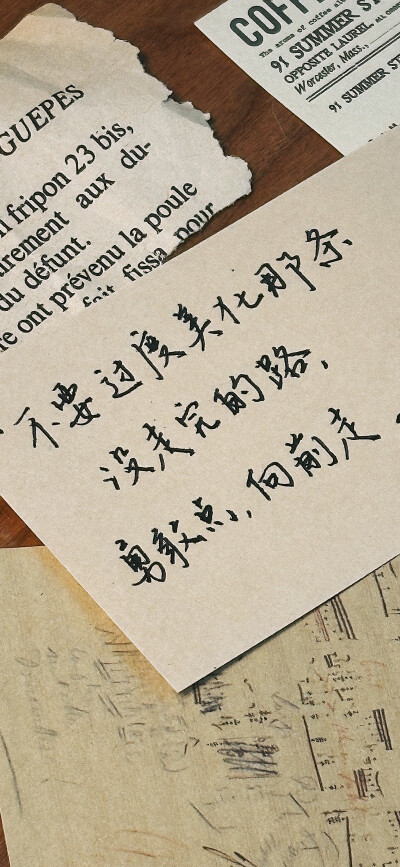 GUEPES
fripon 23 bis,
urement aux du-
du défunt.
re ont prévenu la poule
fait fissa pour
COFF
The aroma of coffee
91 SUMMER ST
OPPOSITE LAUREL.
Worcester, Mass.,
91 SUMMER ST
不要过度美化那条
没走完的路,
勇敢点,向前走